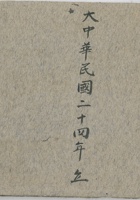 大中華民國二十四年立